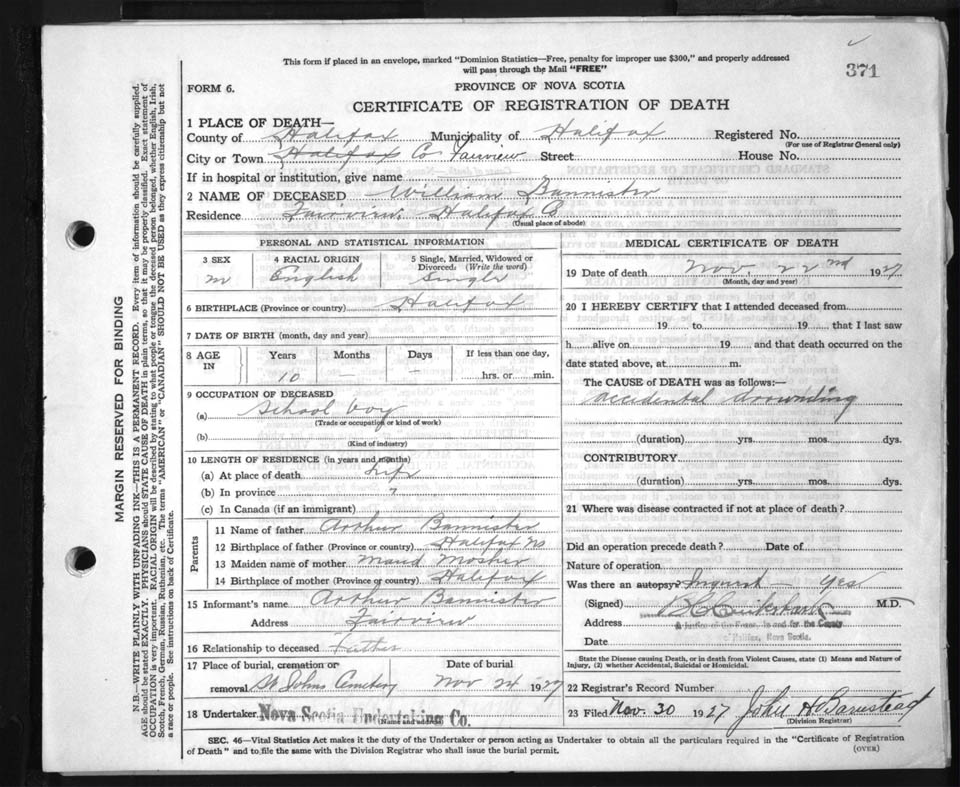 This form if placed in an envelope, marked "Dominion Statistics—Free, penalty for improper use $300," and properly addressed
will pass through the Mail "FREE"
371
FORM 6.
PROVINCE OF NOVA SCOTIA
CERTIFICATE OF REGISTRATION OF DEATH
1 PLACE OF DEATH—
County of Halifax Municipality of Halifax Registered No.
(For use of Registrar General only)
City or Town Halifax Co Fairview Street House No.
If in hospital or institution, give name
2 NAME OF DECEASED William Bannister
Residence Fairview, Halifax Co
(Usual place of abode)
PERSONAL AND STATISTICAL INFORMATION
3 SEX 4 RACIAL ORIGIN 5 Single, Married, Widowed or
Divorced. (Write the word)
m English Single
6 BIRTHPLACE (Province or country) Halifax
7 DATE OF BIRTH (month, day and year)
8 AGE IN Years Months Days If less than one day,
10 — — hrs. or min.
9 OCCUPATION OF DECEASED
(a) School boy
(Trade or occupation or kind of work)
(b)
(Kind of industry)
10 LENGTH OF RESIDENCE (in years and months)
(a) At place of death Life
(b) In province
(c) In Canada (if an immigrant)
Parents
11 Name of father Arthur Bannister
12 Birthplace of father (Province or country) Halifax NS
13 Maiden name of mother Maud Mosher
14 Birthplace of mother (Province or country) Halifax
15 Informant's name Arthur Bannister
Address Fairview
16 Relationship to deceased Father
17 Place of burial, cremation or Date of burial
removal St Johns Cemetery Nov 24 1927
18 Undertaker Nova Scotia Undertaking Co.
(Name and address)
MEDICAL CERTIFICATE OF DEATH
19 Date of death Nov. 22nd 1927
(Month, day and year)
20 I HEREBY CERTIFY that I attended deceased from
19 to 19 that I last saw
h alive on 19 and that death occurred on the
date stated above, at m.
The CAUSE OF DEATH was as follows:—
Accidental drownding
(duration) yrs. mos. dys.
CONTRIBUTORY
(duration) yrs. mos. dys.
21 Where was disease contracted if not at place of death?
Did an operation precede death? Date of
Nature of operation
Was there an autopsy? Inquest — Yes
(Signed) M.D.
Address A Justice of the Peace, in and for the County
of Halifax, Nova Scotia.
Date
State the Disease causing Death, or in death from Violent Causes, state (1) Means and Nature of
Injury, (2) whether Accidental, Suicidal or Homicidal.
22 Registrar's Record Number
23 Filed Nov. 30 1927 John H Barnstead
(Division Registrar)
SEC. 46—Vital Statistics Act makes it the duty of the Undertaker or person acting as Undertaker to obtain all the particulars required in the "Certificate of Registration
of Death" and to file the same with the Division Registrar who shall issue the burial permit.
(OVER)
MARGIN RESERVED FOR BINDING
N.B.—WRITE PLAINLY WITH UNFADING INK—THIS IS A PERMANENT RECORD. Every item of information should be carefully supplied.
AGE should be stated EXACTLY. PHYSICIANS should STATE CAUSE OF DEATH in plain terms, so that it may be properly classified. Exact statement of
OCCUPATION is very important. RACIAL ORIGIN will be described by stating to what people or tongue the deceased person belonged, whether English, Irish,
Scotch, French, German, Russian, Ruthenian, etc. The terms "AMERICAN" or "CANADIAN" SHOULD NOT BE USED as they express citizenship but not
a race or people. See instructions on back of Certificate.